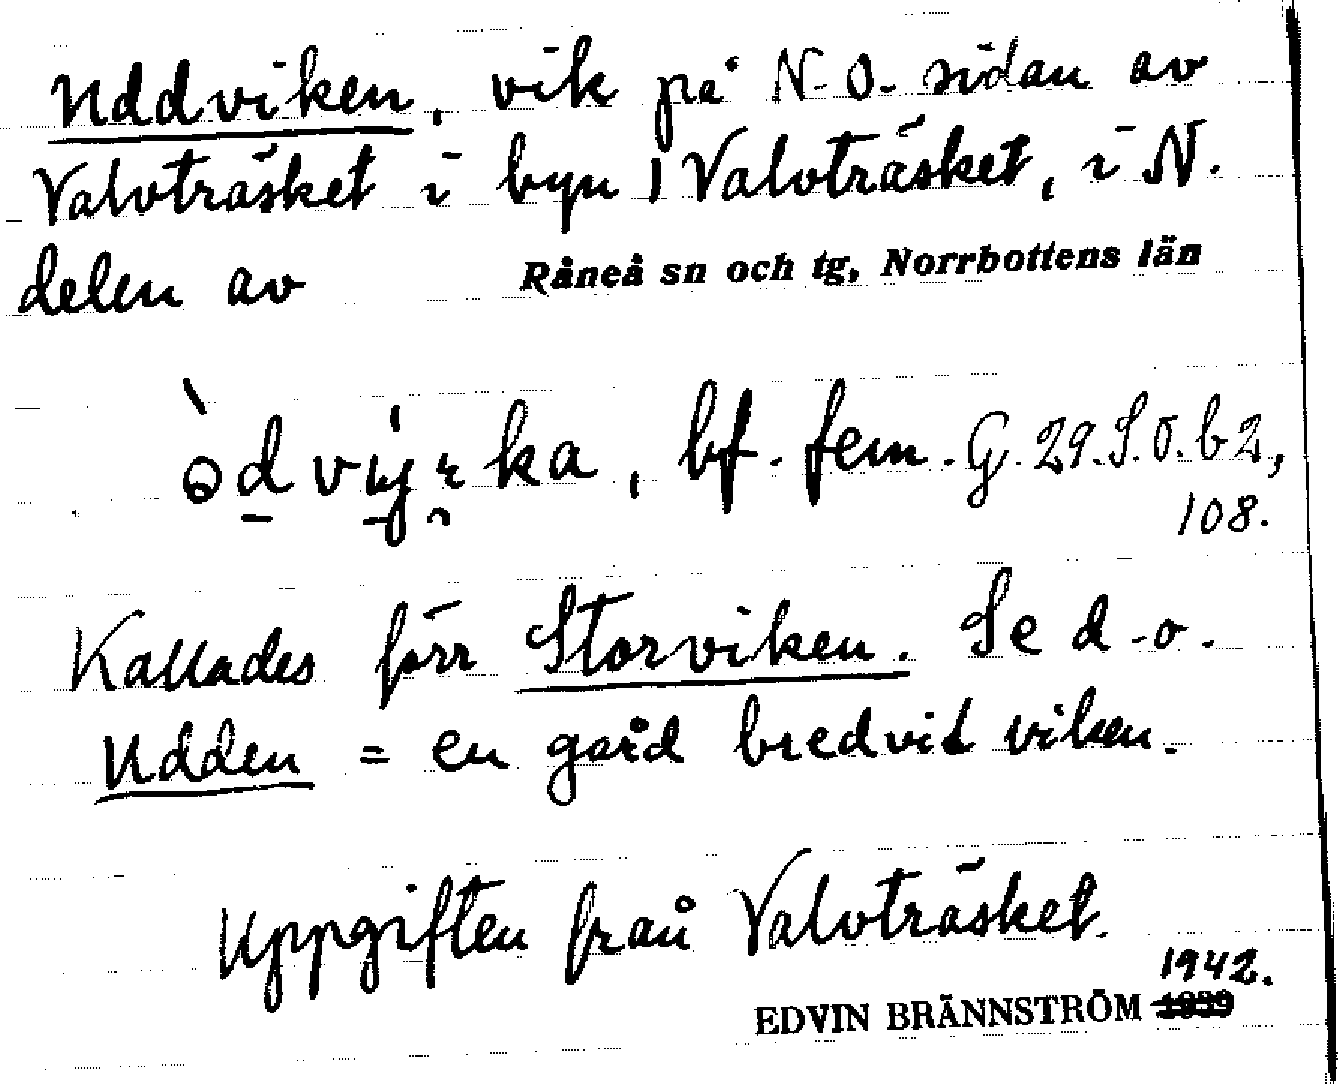 Uddviken, vik på N.O. sidan av
Valvträsket i byn 1 Valvträsket, i N.
delen av Råneå sn och tg, Norrbottens län
bf. fem. G. 29. S.Ö. b 2,
108.
Kallades förr Storviken. Se d-o.
Udden = en gård bredvid viken.
Uppgiften från Valvträsket.
1942.
EDVIN BRÄNNSTRÖM 1939